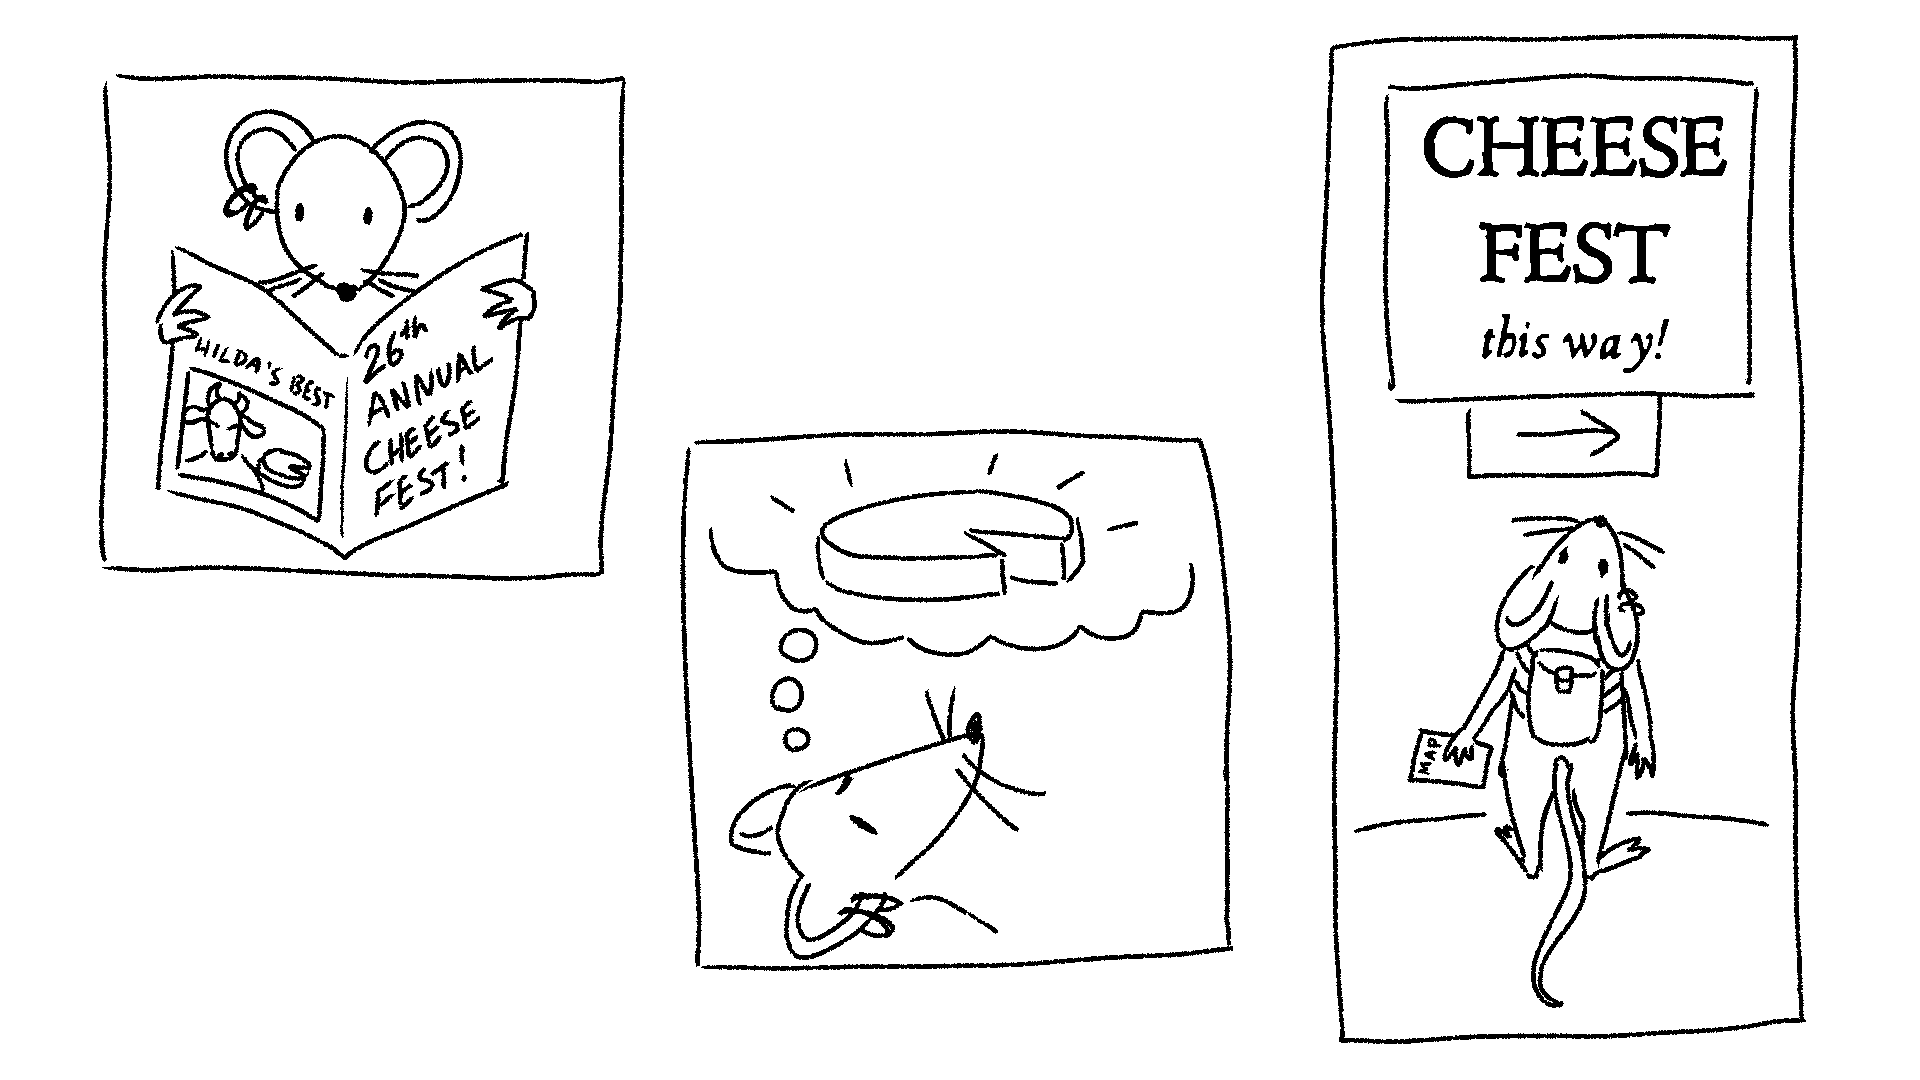 HILDA'S BEST
26th
ANNUAL
CHEESE
FEST!
CHEESE
FEST
this way!
MAP